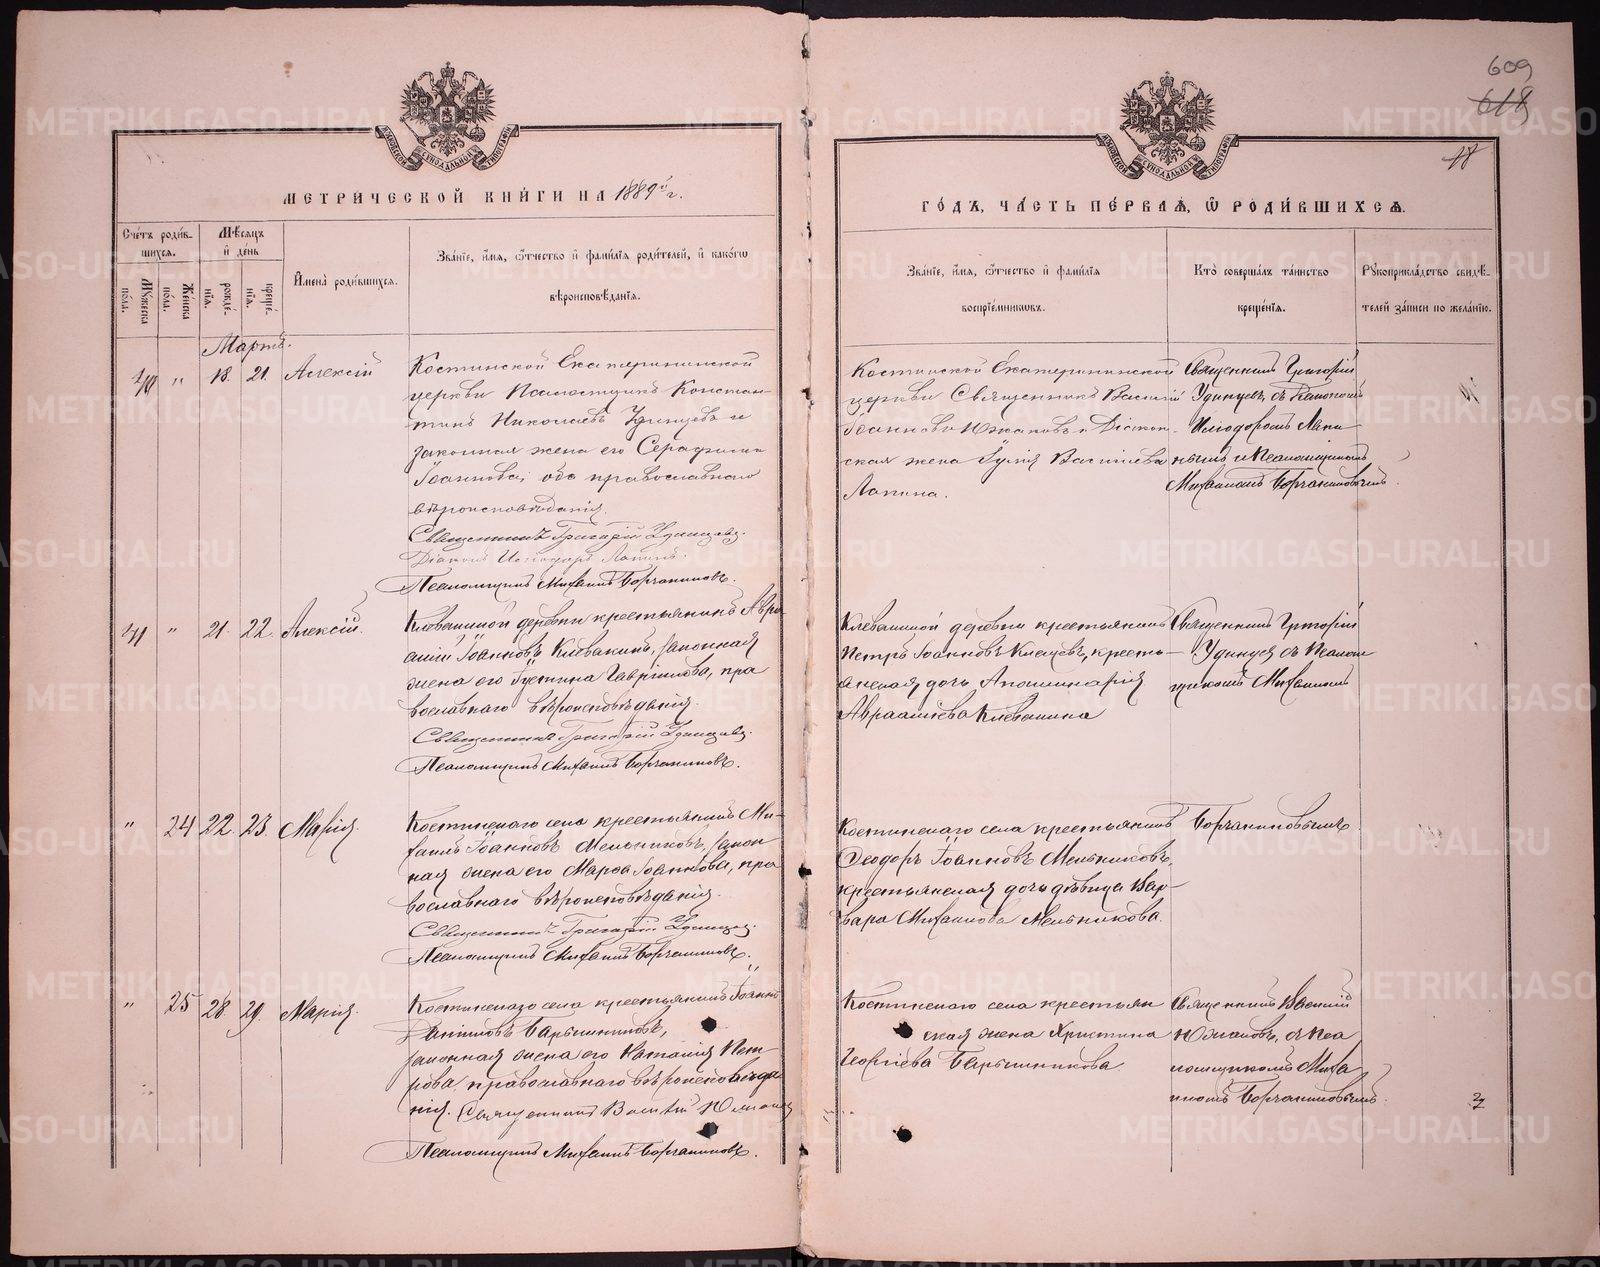 609
618
18
МЕТРИЧЕСКОЙ КНИГИ НА 1889й г.
ГОДЪ, ЧАСТЬ ПЕРВАЯ, Ѡ РОДИВШИХСЯ.
Счетъ родив-
шихся.
Мужеска пола.
Женска пола.
Мѣсяцъ
и день
рожде-
нія.
креще-
нія.
Имена родившихся.
Званіе, имя, ѿчество и фамилія родителей, и какогѡ
вѣроисповѣданія.
Званіе, имя, ѿчество и фамилія
воспріемниковъ.
Кто совершалъ таинство
крещенія.
Рукоприкладство свидѣ-
телей записи по желанію.
Мартъ.
40 " 18. 21. Алексій
Костинской Екатерининской
церкви Псаломщикъ Констан-
тинъ Николаевъ Удинцевъ и
законная жена его Серафима
Іоаннова, оба православнаго
вѣроисповѣданія.
Священникъ Григорій Удинцевъ.
Діаконъ Иліодоръ Лапинъ.
Псаломщикъ Михаилъ Борчаниновъ.
Костинской Екатерининской
церкви Священникъ Василій
Іоанновъ Южаковъ и Діакон-
ская жена Іулія Васильева
Лапина.
Священникъ Григорій
Удинцевъ съ Діакономъ
Иліодоромъ Лапи-
нымъ и Псаломщикомъ
Михаиломъ Борчаниновымъ.
41 " 21. 22. Алексій.
Клевакиной деревни крестьянинъ Авра-
амій Іоанновъ Клевакинъ, законная
жена его Іустина Гавріилова, пра
вославнаго вѣроисповѣданія.
Священникъ Григорій Удинцевъ.
Псаломщикъ Михаилъ Борчаниновъ.
Клевакиной деревни крестьянинъ
Петръ Іоанновъ Клещевъ, кресть-
янская дочь Апполинарія
Авраамиева Клевакина
Священникъ Григорій
Удинцев съ Псалом
щикомъ Михаиломъ
" 24 22. 23. Марія.
Костинскаго села крестьянинъ Ми-
хаилъ Іоанновъ Мельниковъ, закон
ная жена его Марѳа Іоаннова, пра
вославнаго вѣроисповѣданія.
Священникъ Григорій Удинцев.
Псаломщикъ Михаилъ Борчаниновъ.
Костинскаго села крестьянинъ
Ѳеодоръ Іоанновъ Мельниковъ,
крестьянская дочь дѣвица Вар-
вара Михаилова Мельникова.
Борчаниновымъ
" 25 28. 29. Марія.
Костинскаго села крестьянинъ Іоаннъ
Даніиловъ Барышниковъ,
законная жена его Наталія Пет
рова православнаго вѣроисповѣда
нія. Священникъ Василій Южаковъ
Псаломщикъ Михаилъ Борчаниновъ.
Костинскаго села крестьян
ская жена Христина
Георгіева Барышникова
Священникъ Василій
Южаковъ, съ Пса
ломщикомъ Миха
иломъ Борчаниновымъ.
METRIKI.GASO-URAL.RU